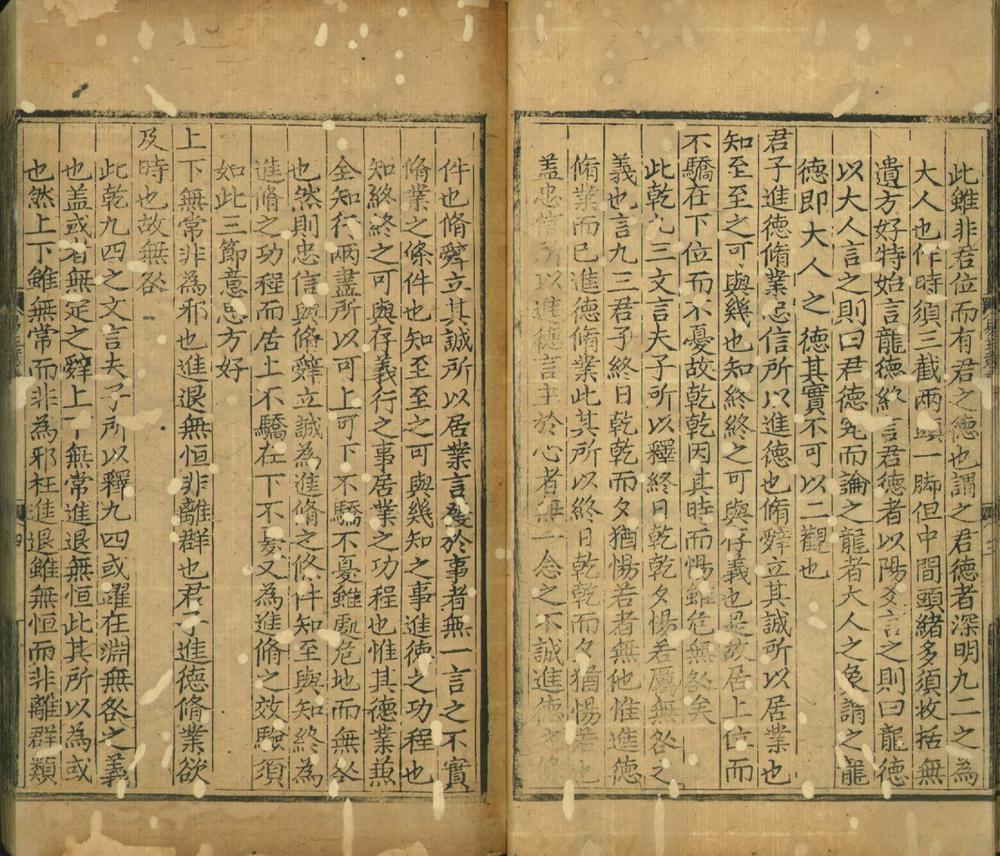 此雖非君位而有君之德也謂之君德者深明九二之為
大人也作時須三截兩頭一脚但中間頭緒多須收括無
遺方好特始言龍德終言君德者以陽爻言之則曰龍德
以大人言之則曰君德究而論之龍者大人之象謂之龍
德即大人之德其實不可以二觀也
君子進德脩業忠信所以進德也脩辭立其誠所以居業也
知至至之可與幾也知終終之可與存義也是故居上位而
不驕在下位而不憂故乾乾因其時而惕雖危無咎矣
此乾九三文言夫子所以釋終日乾乾夕惕若厲無咎之
義也言九三君子終日乾乾而夕猶惕若者無他惟進德
脩業而已進德脩業此其所以終日乾乾而夕猶惕若也
蓋忠信所以進德言主於心者無一念之不誠進德之條
件也脩辭立其誠所以居業言發於事者無一言之不實
脩業之條件也知至至之可與幾知之事進德之功程也
知終終之可與存義行之事居業之功程也惟其德業兼
全知行兩盡所以可上可下不驕不憂雖處危地而無咎
也然則忠信與脩辭立誠為進脩之條件知至與知終為
進脩之功程而居上不驕在下不憂又為進脩之效驗須
如此三節意思方好
上下無常非為邪也進退無恒非離群也君子進德脩業欲
及時也故無咎
此乾九四之文言夫子所以釋九四或躍在淵無咎之義
也蓋或者無定之辭上下無常進退無恒此其所以為或
也然上下雖無常而非為邪枉進退雖無恒而非離群類